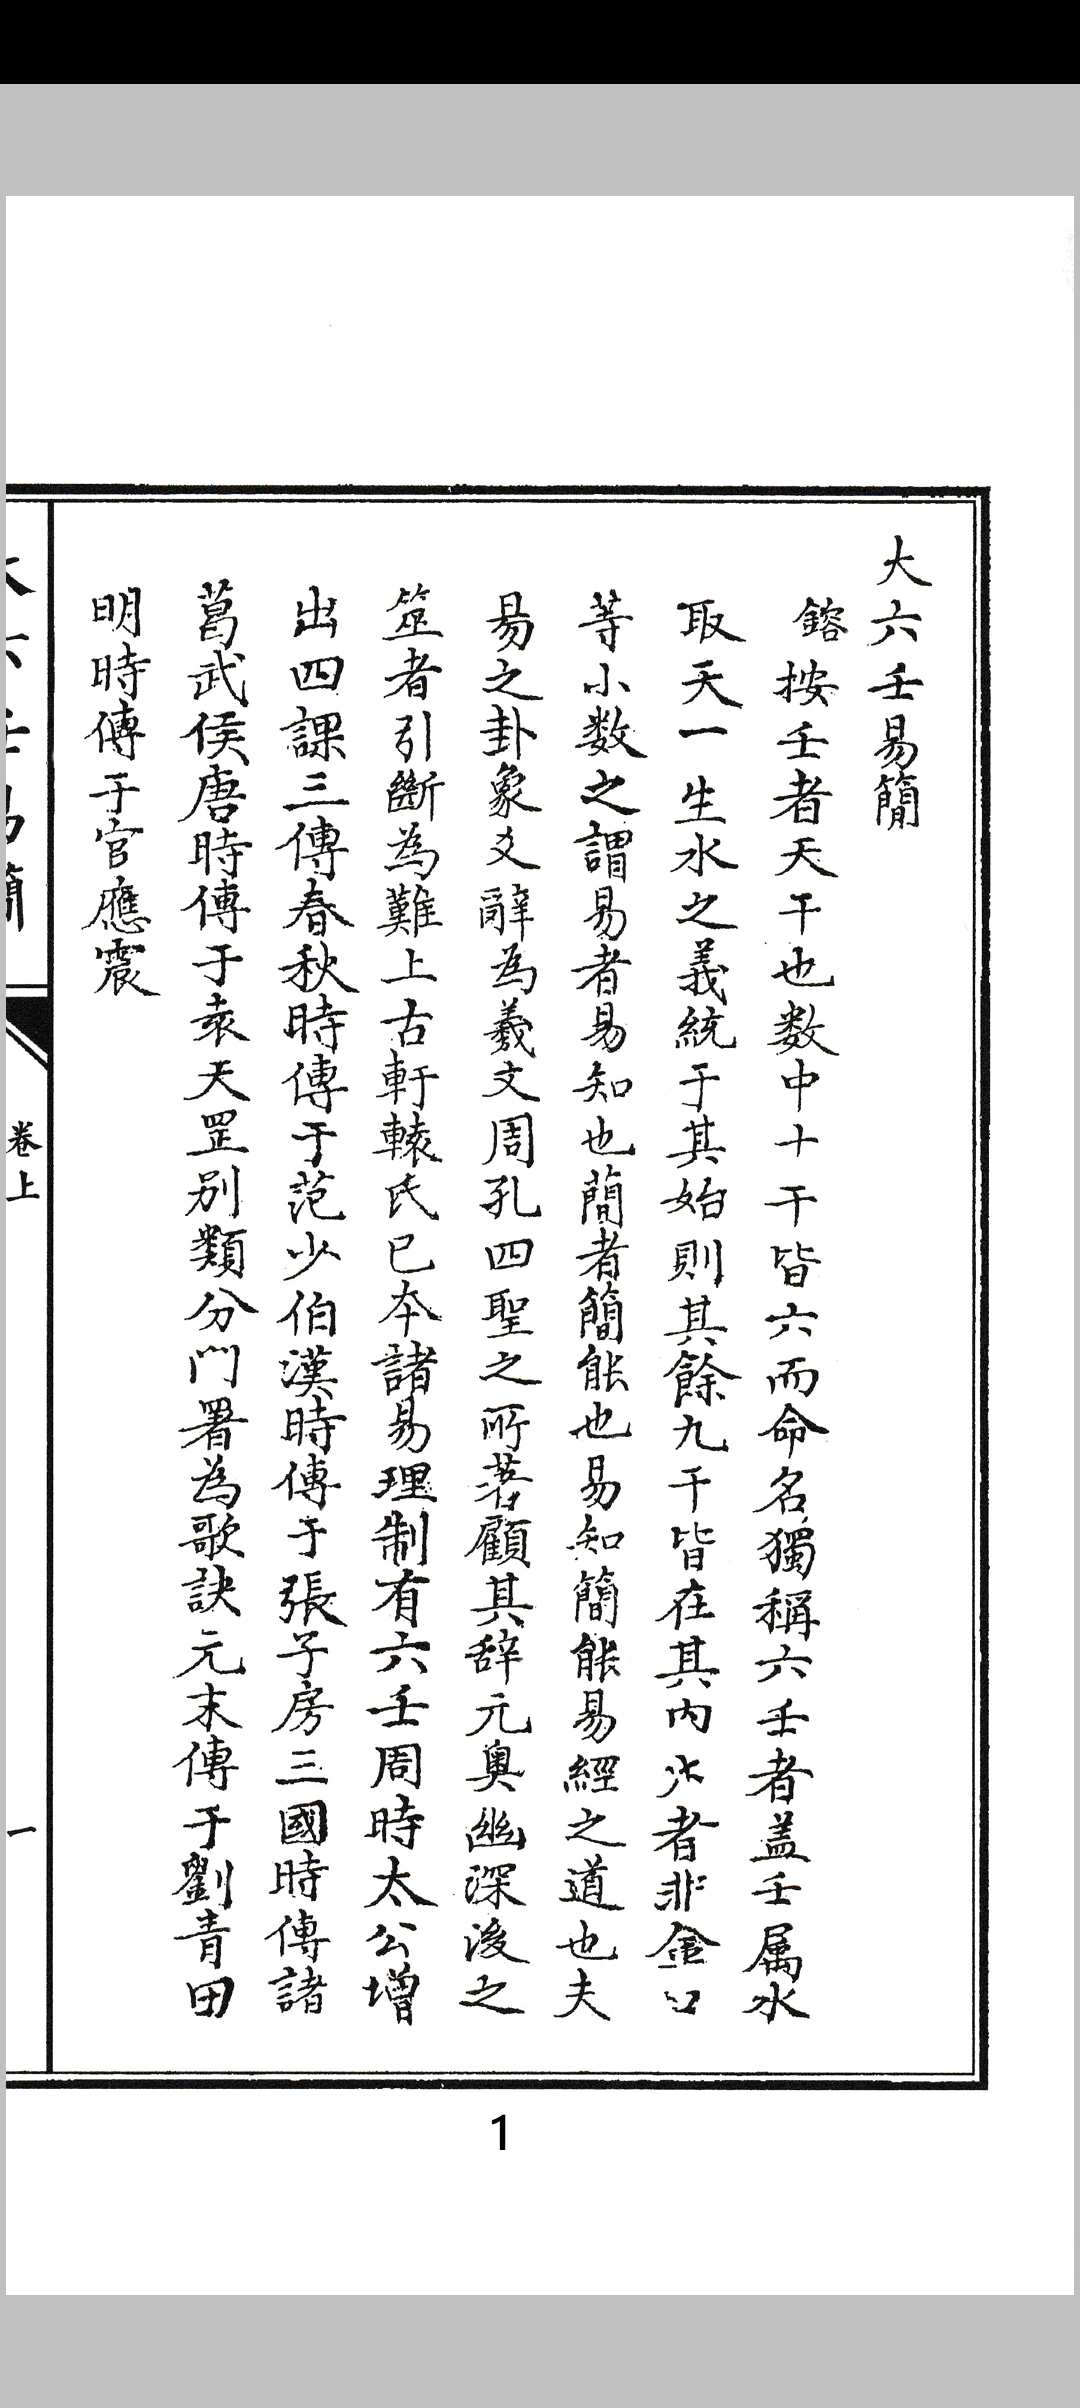 大六壬易簡
鎔按壬者天干也数中十干皆六而命名獨稱六壬者盖壬属水
取天一生水之義統于其始則其餘九干皆在其内大者非金口
等小数之謂易者易知也簡者簡能也易知簡能易經之道也夫
易之卦象爻辭為羲文周孔四聖之所著顧其辞元奥幽深後之
筮者引斷為難上古軒轅氏已本諸易理制有六壬周時太公增
出四課三傳春秋時傳于范少伯漢時傳于張子房三國時傳諸
葛武侯唐時傳于袁天罡别類分門署為歌訣元末傳于劉青田
明時傳于官應震
大六壬易簡
卷上
一
1